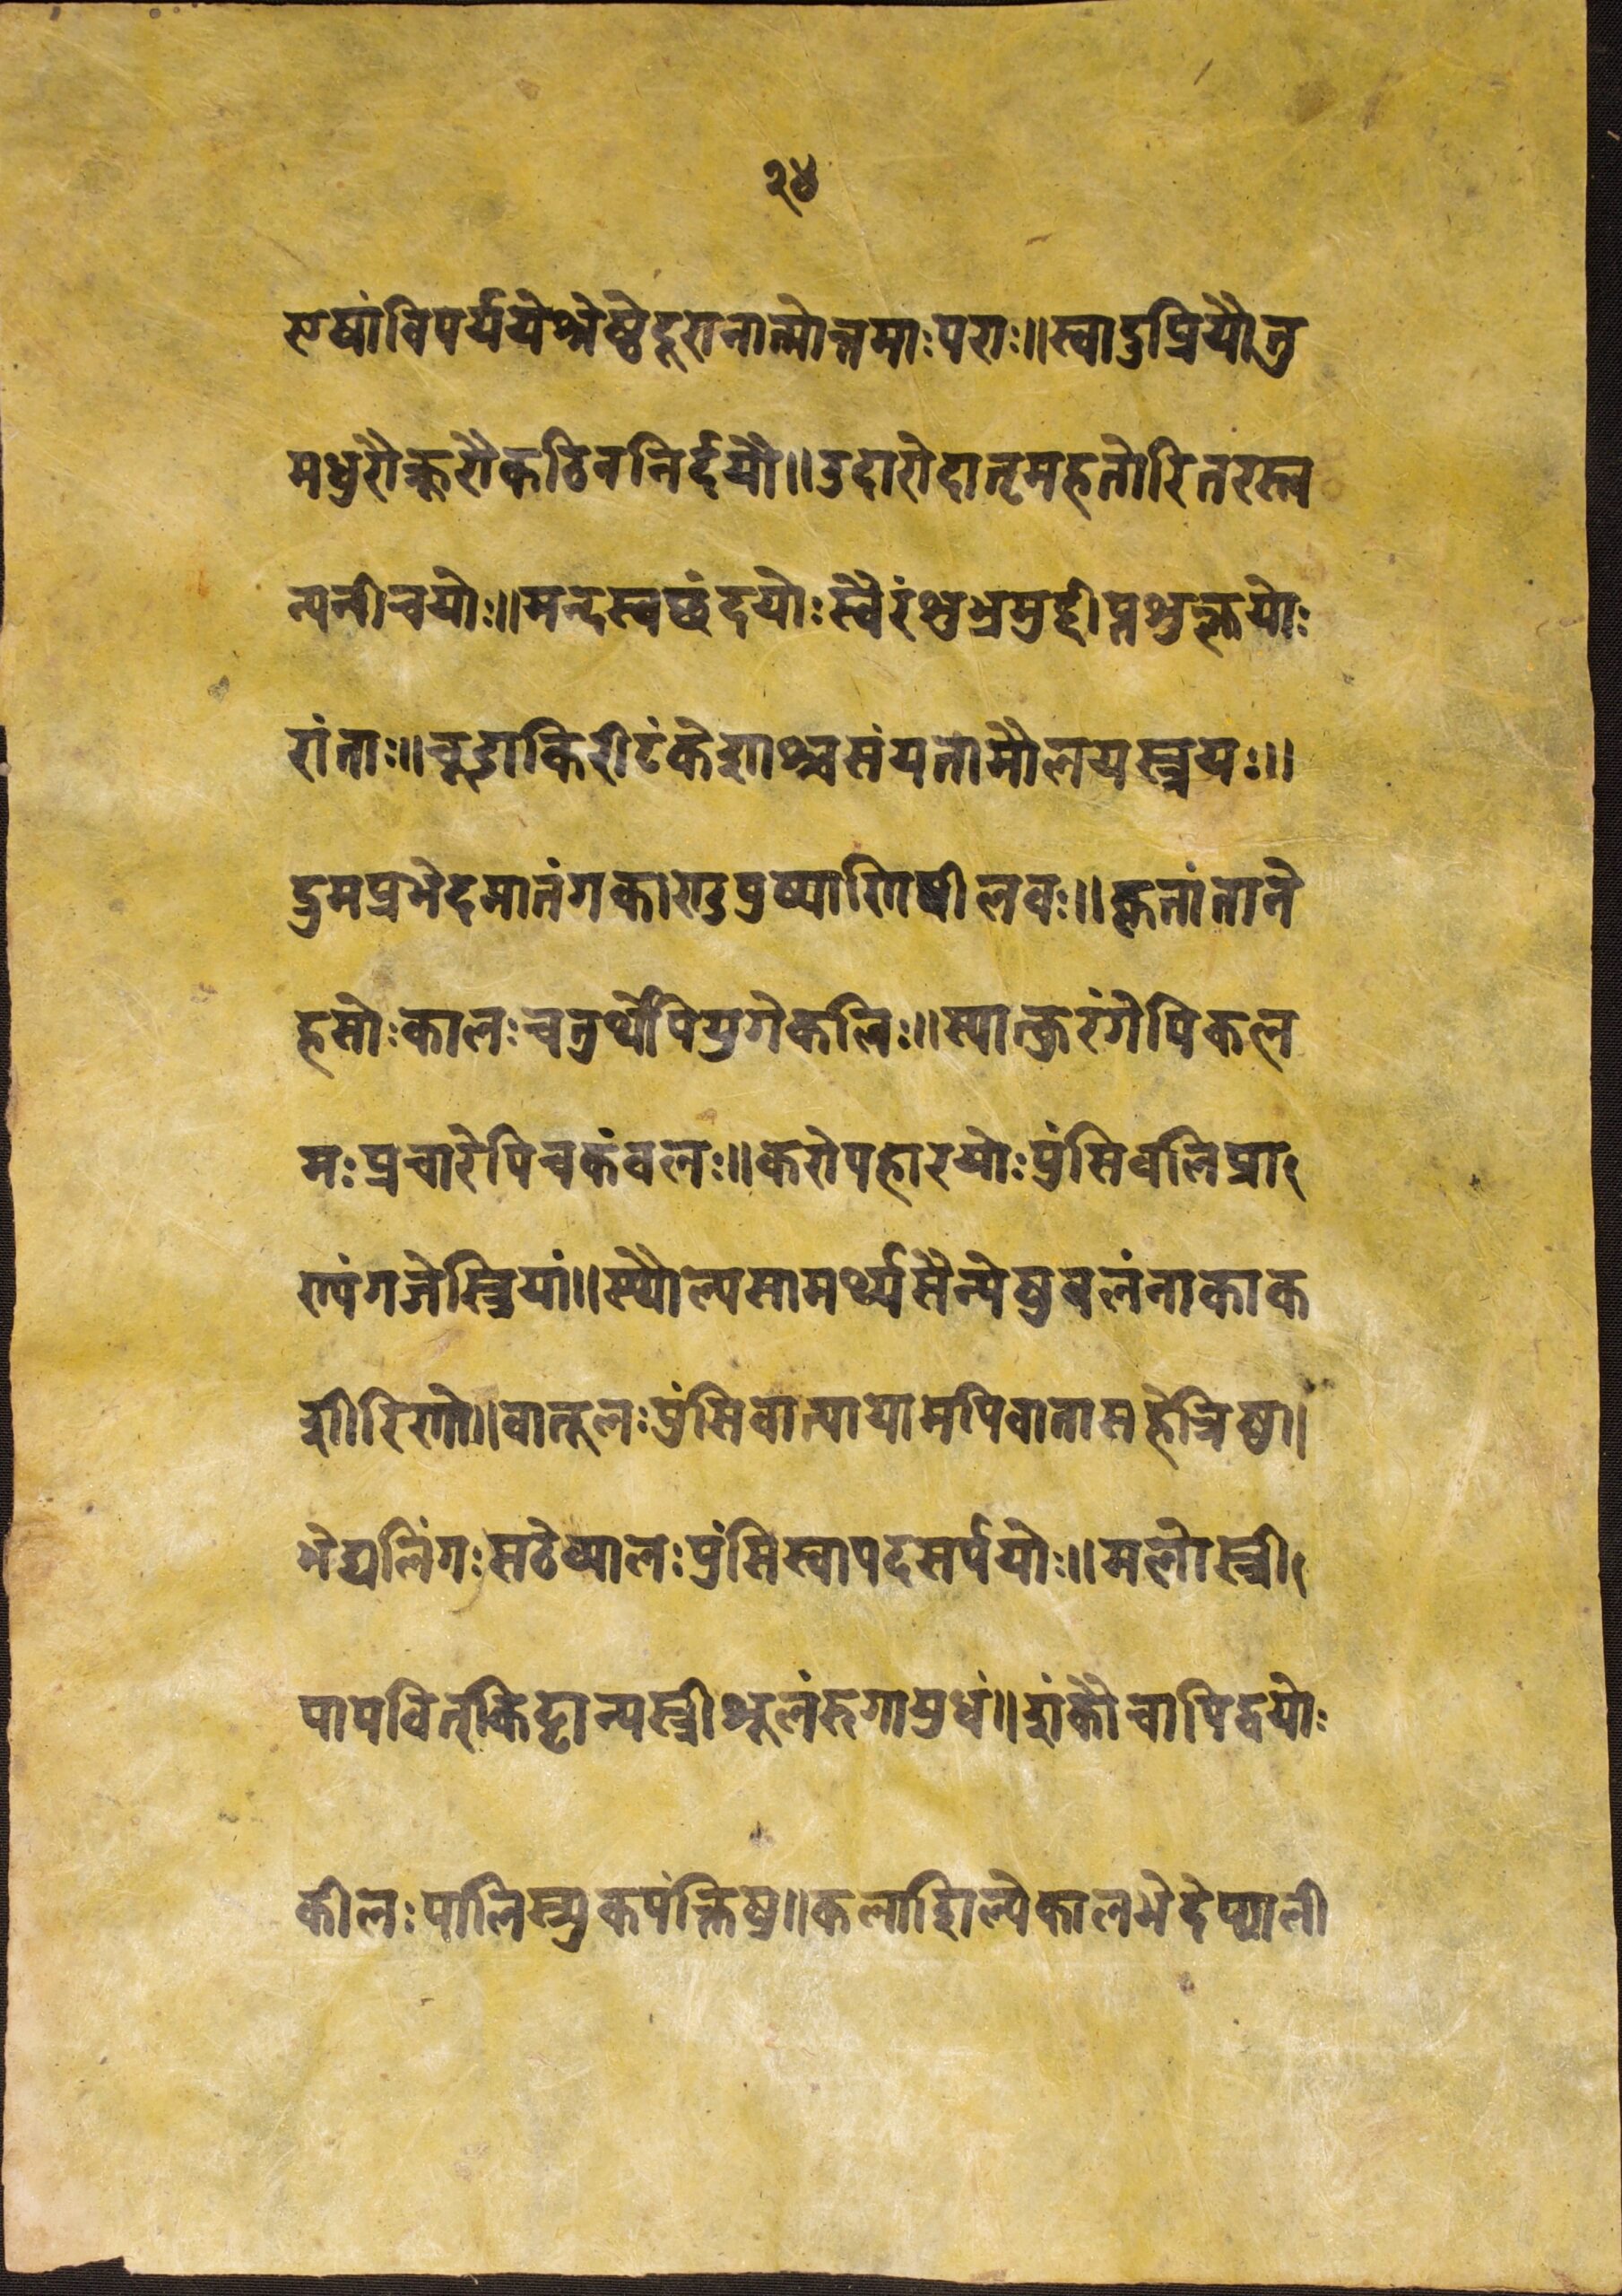 २४
एषांविपर्ययेश्रेष्ठेदूरानात्मोत्तमाःपराः॥स्वादुप्रियौतु
मधुरौक्रूरौकठिननिर्द्दयौ॥उदारोदातृमहतोरितरस्त्व
न्यनीचयोः॥मन्दस्वछंदयोःस्वैरंशुभ्रमुद्दीप्तशुक्लयोः
रांताः॥चूडाकिरीटंकेशाश्चसंयतामौलयस्त्रयः॥
द्रुमप्रभेदमातंगकाण्डपुष्पाणिषीलवः॥कृतांताने
हसोःकालःचतुर्थेपियुगेकलिः॥स्यात्कुरंगेपिकल
मःप्रचारेपिचकंवलः॥करोपहारयोःपुंसिवलिप्रा
ण्यंगजेस्त्रियां॥स्थौल्यसामर्थ्यसैन्येषुबलंनाकाक
शीरिणो॥वातूलःपुंसिवात्यायामपिवातासहेत्रिषा।
भेद्यलिंगःसठेव्यालःपुंसिस्वापदसर्पयोः॥मलोस्त्री
पापवित्किट्टान्यस्त्रीशूलंरुगायुधं॥शंकौचापिद्वयोः
कीलःपालिस्त्र्यकपंक्तिषु॥कलाशिल्पेकालभेदेप्याली